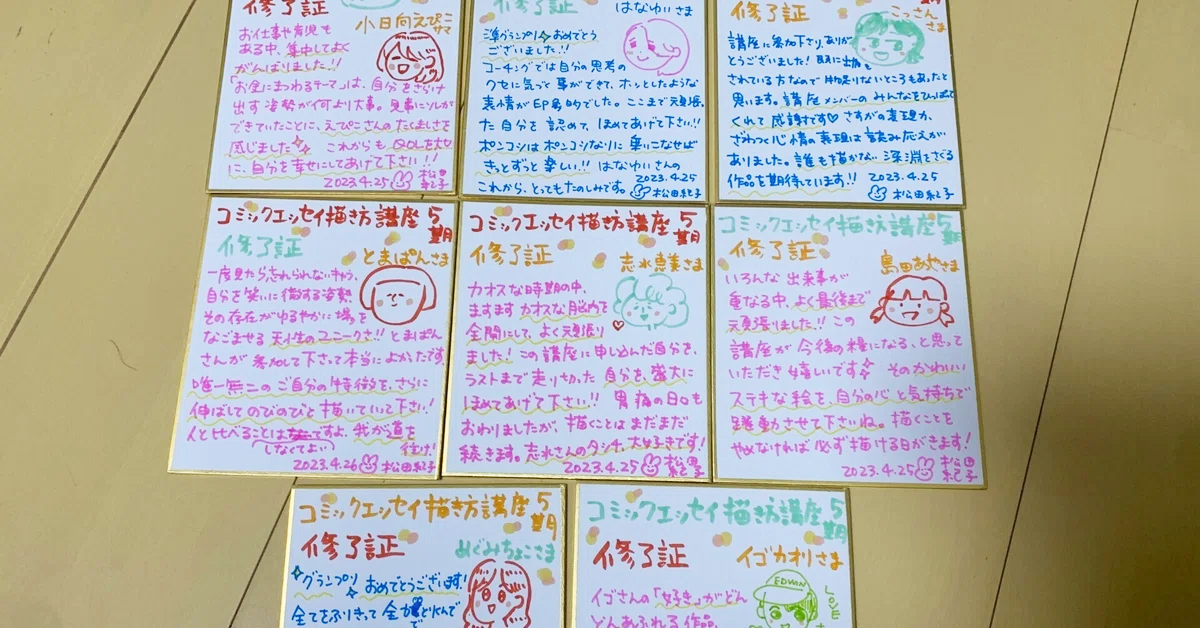 修了証
小日向えぴこ
サマ
お仕事や育児も
ある中、集中してよく
がんばりました!!
「お金にまつわるテーマ」は、自分をさらけ
出す姿勢が何より大事。見事にソレが
できていたことに、えぴこさんのたくましさを
感じました これからも QOLを大切
に、自分を幸せにしてあげて下さい!!
2023.4.25 松田紀子
修了証
はなゆいさま
準グランプリ おめでとう
ございました!!
コーチングでは自分の思考の
クセに気づく事ができて、ホッとしたような
表情が印象的でした。ここまで頑張っ
た自分を認めて、ほめてあげて下さい!!
ポンコツはポンコツなりに乗いこなせば
きっとずっと楽しい!! はなゆいさんの
これから、とってもたのしみです。
2023.4.25 松田紀子
修了証
こっさん
さま
講座に参加下さり、ありが
とうございました! 既に出版も
されている方なので物足りないところもあったと
思います。講座メンバーのみんなをひっぱって
くれて感謝です♡ さすがの表現力、
ざわつく心情の表現は読み応えが
ありました。誰も描かない深淵をさぐる
作品を期待しています!!
2023.4.25
松田紀子
コミックエッセイ描き方講座5期
修了証
とまぱんさま
一度見たら忘れられないキャラ、
自分を笑いに徹する姿勢
その存在がゆるやかに場を
なごませる 天性のユニークさ!! とまぱん
さんが参加して下さって本当によかったです。
唯一無二のご自分の特徴を、さらに
伸ばしてのびのびと描いていって下さい!
人と比べることは
しなくてよい
ですよ。我が道を
往け!
2023.4.26 松田紀子
コミックエッセイ描き方講座5期
修了証
志水恵美さま
カオスな時期の中、
ますますカオスな脳内を
全開にして、よく頑張り
ました! この講座に申し込んだ自分を、
ラストまで走り切った自分を、盛大に
ほめてあげて下さい!! 胃痛の日々も
おわりましたが、描くことはまだまだ
続きます。志水さんのタッチ、大好きです!
2023.4.25 松田紀子
コミックエッセイ描き方講座5期
修了証
島田あやさま
いろんな出来事が
重なる中、よく最後まで
頑張りました!! この
講座が今後の糧になる、と思って
いただき嬉しいです そのかわいい
ステキな絵を、自分の心と気持ちで
躍動させて下さいね。描くことを
やめなければ必ず描ける日がきます!
2023.4.25 松田紀子
コミックエッセイ描き方講座5期
修了証
めぐみちょこさま
グランプリ おめでとうございます!
全てをふりきって全力
コミックエッセイ描き方講座5期
修了証
イゴカオリさま
EDWIN
LOVE
イゴさんの「好き」がどん
どんあふれる作品、